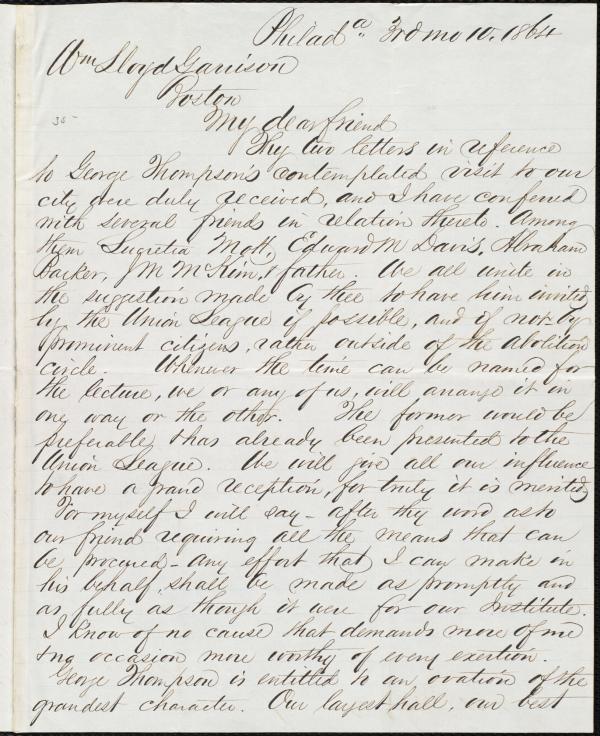 Philada. 3rd mo 10. 1864
Wm Lloyd Garrison
Boston
38-
My dear friend
Thy two letters in reference
to George Thompsons contemplated visit to our
city were duly received, and I have conferred
with several friends in relation thereto. Among
them Lucretia Mott, Edward M Davis, Abraham
Barker, J M McKim & father. We all unite in
the suggestion made by thee to have him invited
by the Union League if possible, and if not by
prominent citizens, rather outside of the abolition
circle. Whenever the time can be named for
the lecture, we or any of us, will arrange it in
one way or the other. The former would be
preferable & has already been presented to the
Union League. We will give all our influence
to have a grand reception, for truly it is merited
For myself I will say - after thy word as to
our friend requiring all the means that can
be procured - any effort that I can make in
his behalf, shall be made as promptly and
as fully as though it were for our Institute.
I know of no cause that demands more of me
& no occasion more worthy of every exertion.
George Thompson is entitled to an ovation of the
grandest character. Our largest hall, our best